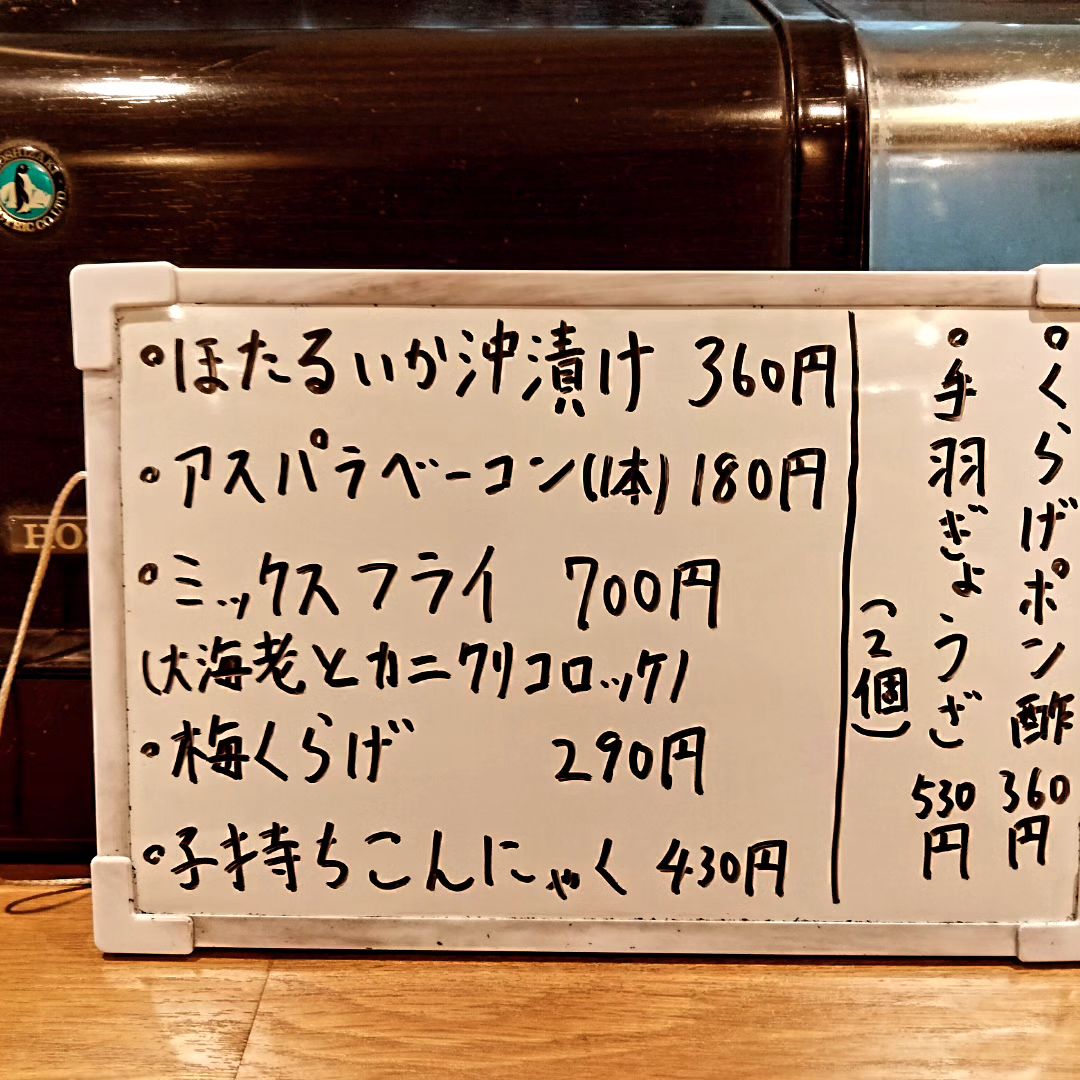 ・ほたるいか沖漬け 360円
・アスパラベーコン(1本) 180円
・ミックスフライ 700円
(大海老とカニクリコロッケ)
・梅くらげ 290円
・子持ちこんにゃく 430円
・くらげポン酢 360円
・手羽ぎょうざ 530円
(2個)
HOS